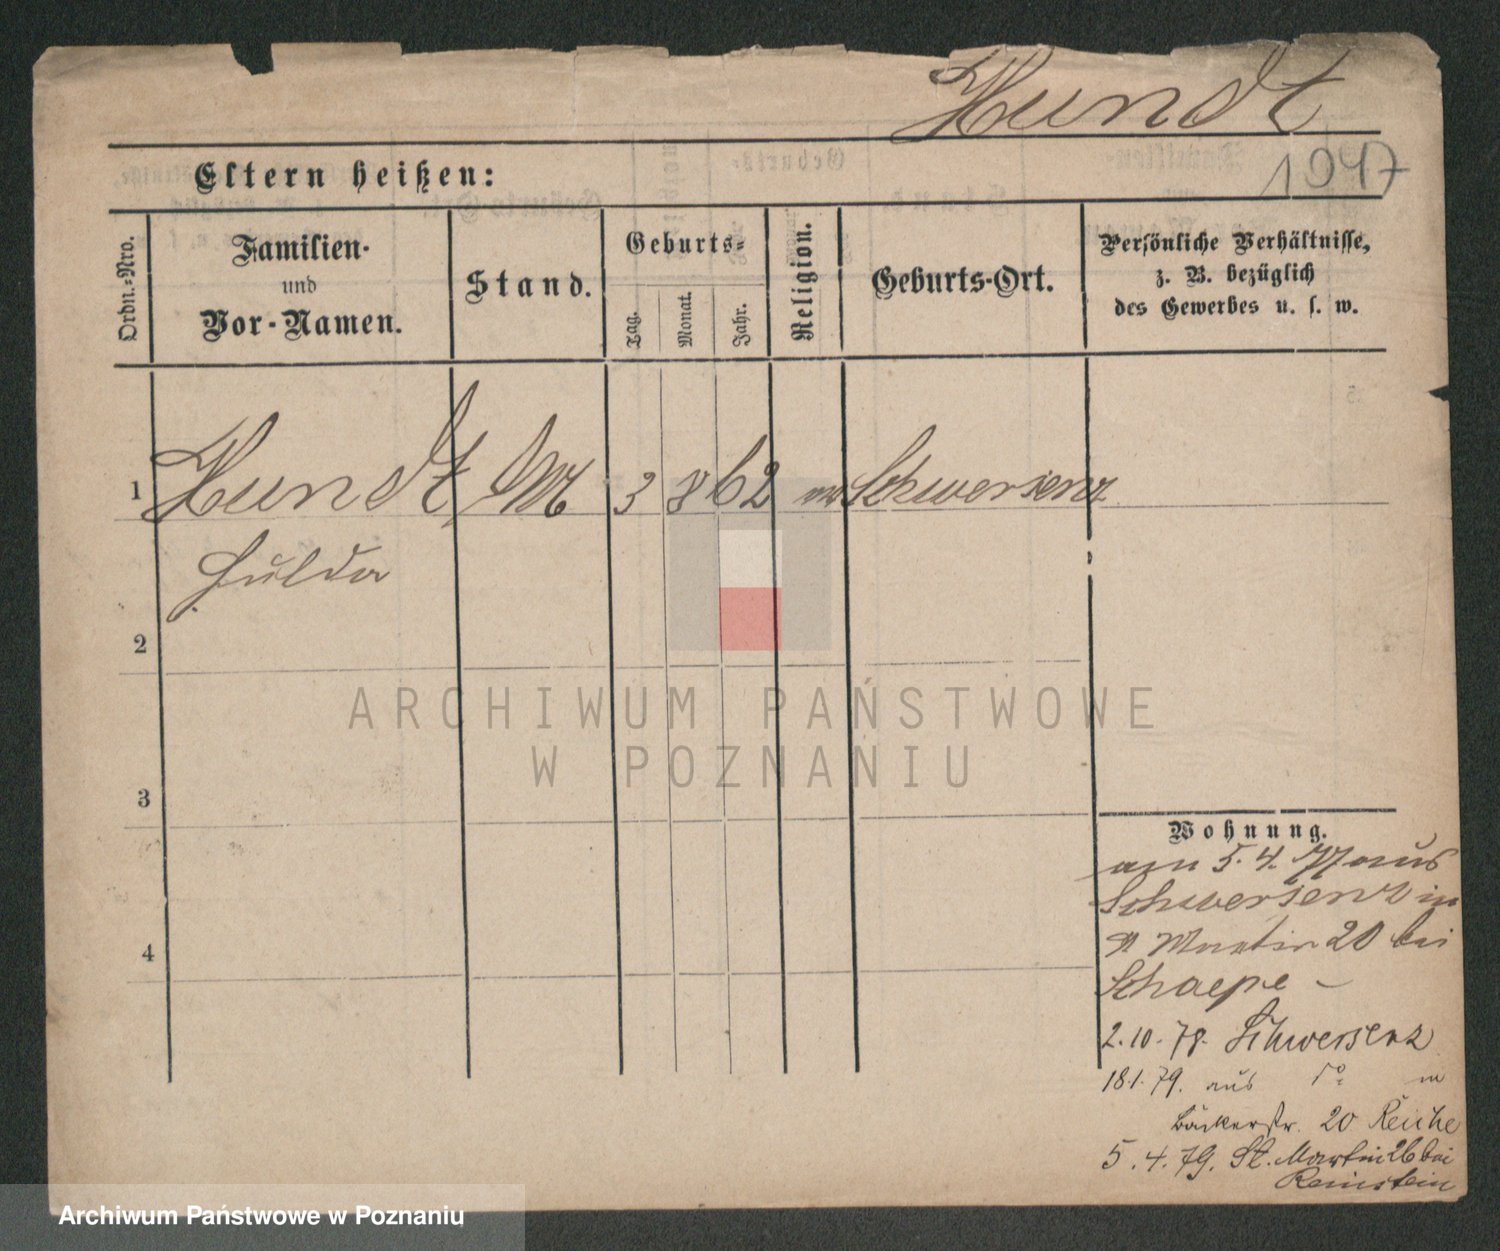 Hundt
1947
Eltern heißen:
Ordn.-Nro.
Familien-
und
Vor-Namen.
Stand.
Geburts-
Tag.
Monat.
Jahr.
Religion.
Geburts-Ort.
Persönliche Verhältnisse,
z. B. bezüglich
des Gewerbes u. s. w.
1 Hundt M 3 8 62 Schwersenz
Hulda
2
3
4
Wohnung.
am 5. 4. 77 aus
Schwersenz in
Martin 20 bei
Schaepe -
2. 10. 78. Schwersenz
18. 1. 79. aus do in
Bäckerstr. 20 Reiche
5. 4. 79. St. Martin 26 bei
Reinstein
ARCHIWUM PAŃSTWOWE
W POZNANIU
Archiwum Państwowe w Poznaniu